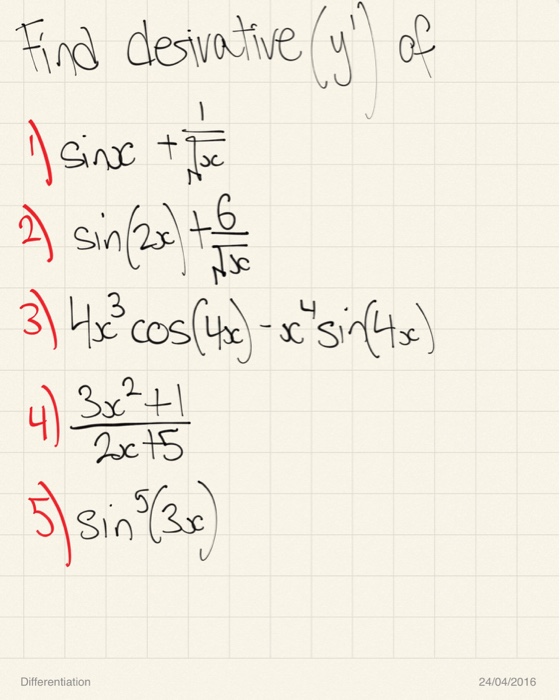 Find desivative (y') of
1) sinx + 1/√x
2) sin(2x) + 6/√x
3) 4x³cos(4x) - x⁴sin(4x)
4) (3x²+1)/(2x+5)
5) sin⁵(3x)
Differentiation 24/04/2016